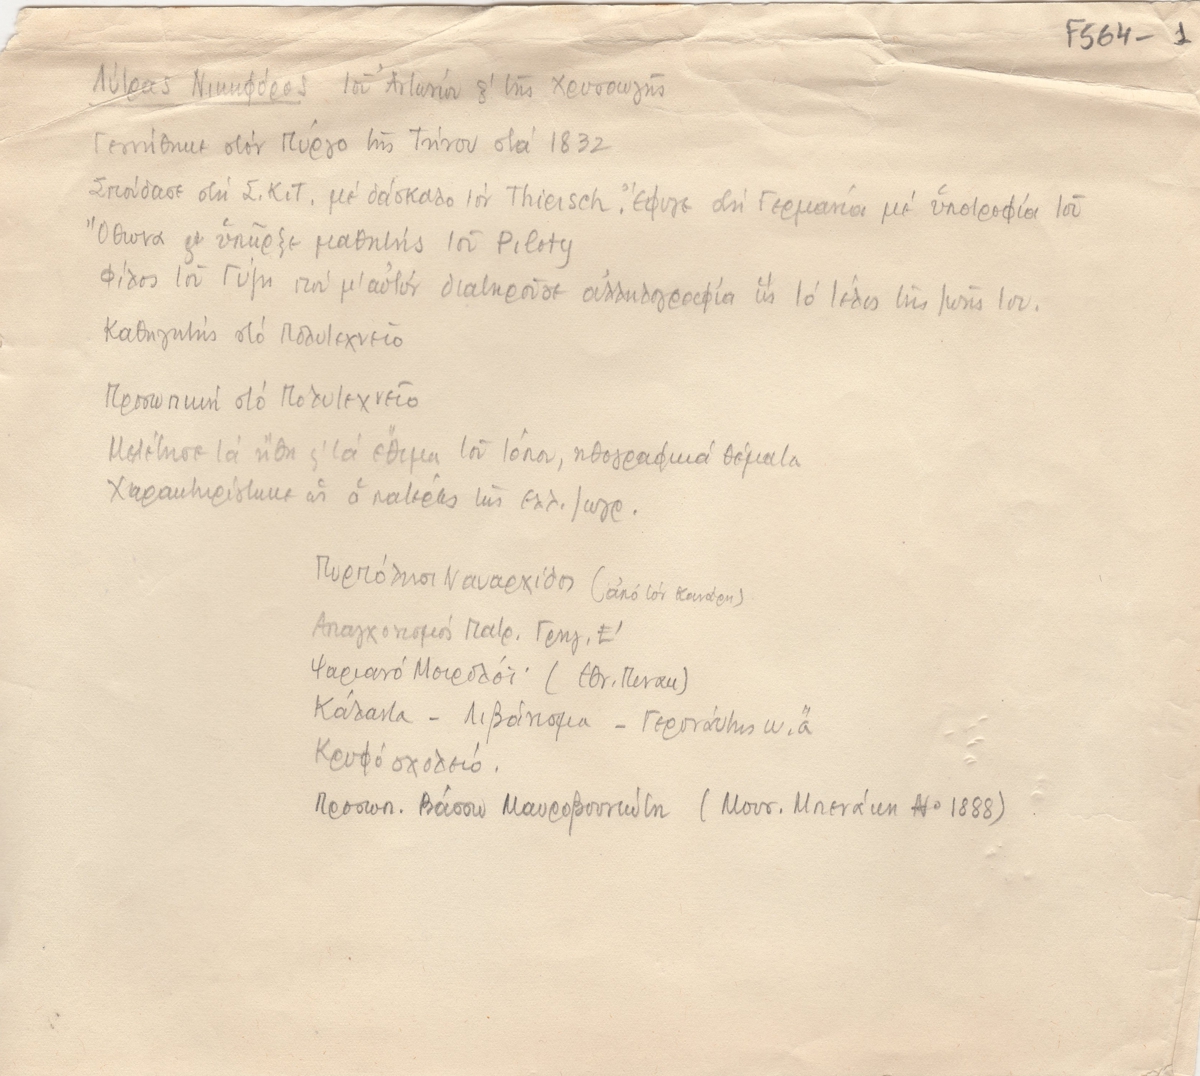 F564-1
Λύτρας Νικηφόρος τοῦ Ἀντωνίου ϗ' τῆς
Γεννήθηκε στόν Πύργο τῆς Τήνου στά 1832
Σπούδασε στή Σ.Κ.Τ. μέ δάσκαλο τόν Thiersch. Ἔφυγε στή Γερμανία μέ ὑποτροφία τοῦ
Ὄθωνα ϗ' ὑπῆρξε μαθητής τοῦ Piloty
Φίλος τοῦ Γύζη πού μ' αὐτόν διατηροῦσε ἀλληλογραφία ὥς τό τέλος τῆς ζωῆς του.
Καθηγητής στό Πολυτεχνεῖο
Προσωπική στό Πολυτεχνεῖο
Μελέτησε τά ἤθη ϗ' τά ἔθιμα τοῦ τόπου, ηθογραφικά θέματα
Χαρακτηρίστηκε ὡς ὁ πατέρας τῆς ελλ. ζωγρ.
Πυρπόληση Ναυαρχίδος (ἀπό τόν Κανάρη)
Απαγχονισμός Πατρ. Γρηγ. Ε'
Ψαριανό Μοιρολόϊ (Εθν. Πινακ)
Κάλαντα - Λιβάνισμα - Γεροναύτης κ.ἄ
Κρυφό σχολειό.
Προσωπ. Βάσσω Μαυροβουνιώτη (Μουσ. Μπενάκη Νο 1888)